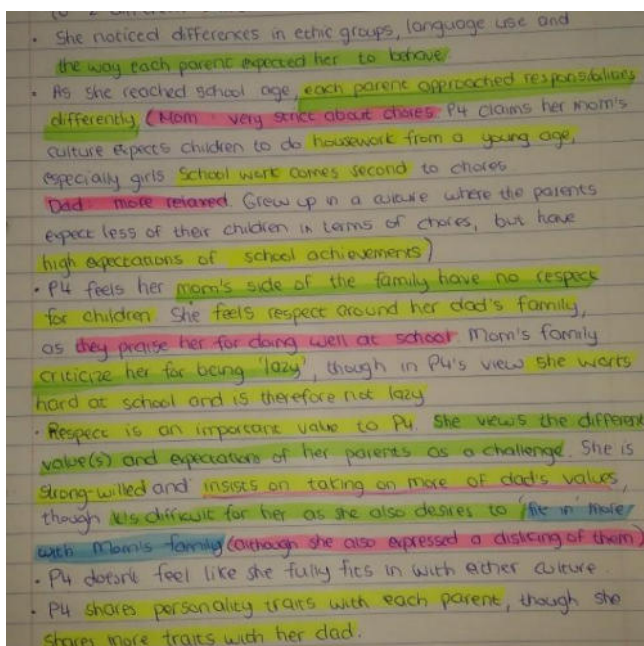 • She noticed differences in ethic groups, language use and
the way each parent expected her to behave.
• As she reached school age, each parent approached responsibilities
differently, (Mom - very strict about chores. P4 claims her mom's
culture expects children to do housework from a young age,
especially girls. School work comes second to chores
Dad - more relaxed. Grew up in a culture where the parents
expect less of their children in terms of chores, but have
high expectations of school achievements)
• P4 feels her mom's side of the family have no respect
for children. She feels respect around her dad's family,
as they praise her for doing well at school. Mom's family
criticize her for being 'lazy', though in P4's view she works
hard at school and is therefore not lazy
• Respect is an important value to P4. She views the different
value(s) and expectations of her parents as a challenge. She is
strong-willed and insists on taking on more of dad's values,
though it's difficult for her as she also desires to 'fit in' more
with Mom's family (although she also expressed a disliking of them)
• P4 doesn't feel like she fully fits in with either culture.
• P4 shares personality traits with each parent, though she
shares more traits with her dad.